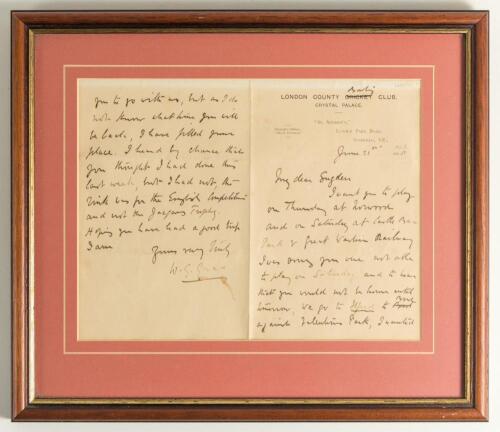 Bowling
LONDON COUNTY CRICKET CLUB.
CRYSTAL PALACE.
"St. Andrew's,"
Lower Park Road
June 21st
My dear Sugden
I want you to play
on Thursday at Norwood
and on Saturday at Castle Bar
Park v Great Western Railway
I was sorry you were not able
to play on Saturday and to hear
that you would not be home until
tomorrow, we go to Ilford to
against Valentines Park, I wanted
you to go with us, but as I do
not know what time you will
be back, I have filled your
place. I heard by chance that
you thought I had done this
last week, but I had not, the
rink was for the English Competition
and not the Trophy.
Hoping you have had a good trip
I am
Yours very truly
W. G. Grace